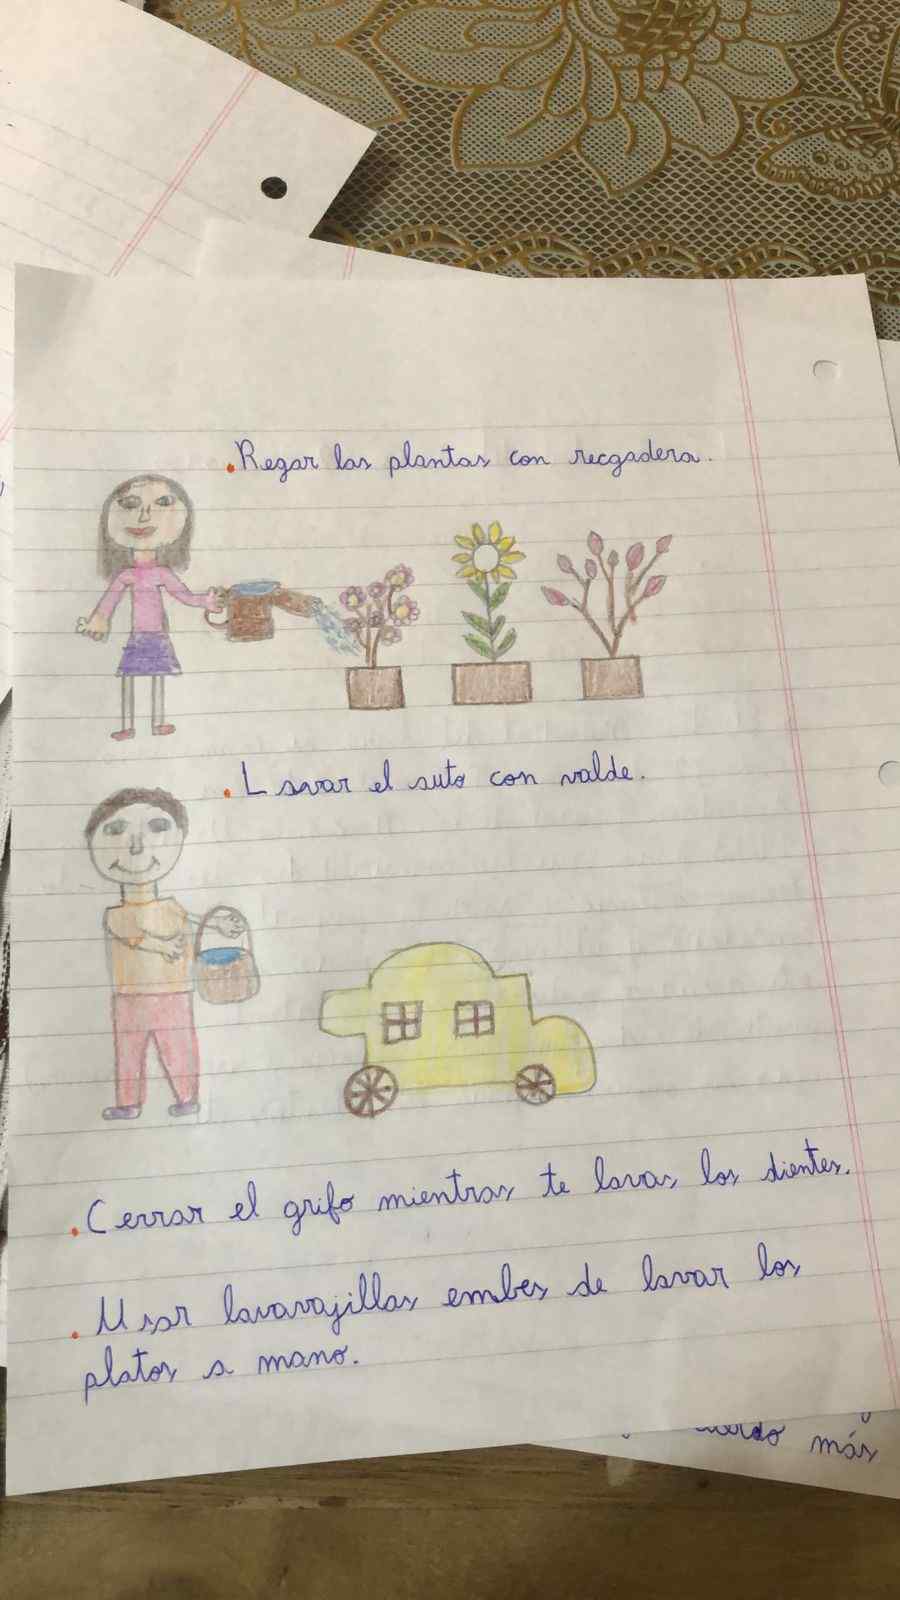 . Regar las plantas con recgadera.
. Lavar el auto con valde.
. Cerrar el grifo mientras te lavas los dientes.
. Usar lavavajillas embes de lavar los
platos a mano.
más